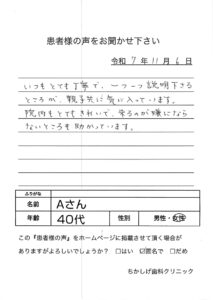 患者様の声をお聞かせ下さい
令和 7 年 11 月 6 日
いつもとても丁寧で、一つ一つ説明下さる
ところが、親子共に気に入っています。
院内もとてもきれいで、来るのが嫌になら
ないところも助かっています。
ふりがな
名前 Aさん
年齢 40代 性別 男性・女性
この『患者様の声』をホームページに掲載させて頂く場合が
ありますがよろしいでしょうか？ □はい ☑匿名で □だめ
ちかしげ歯科クリニック